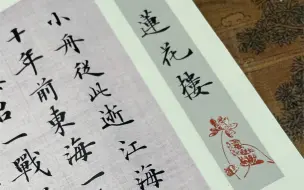 蓮花楼
小舟從此逝江海
十年前東海一
一戰